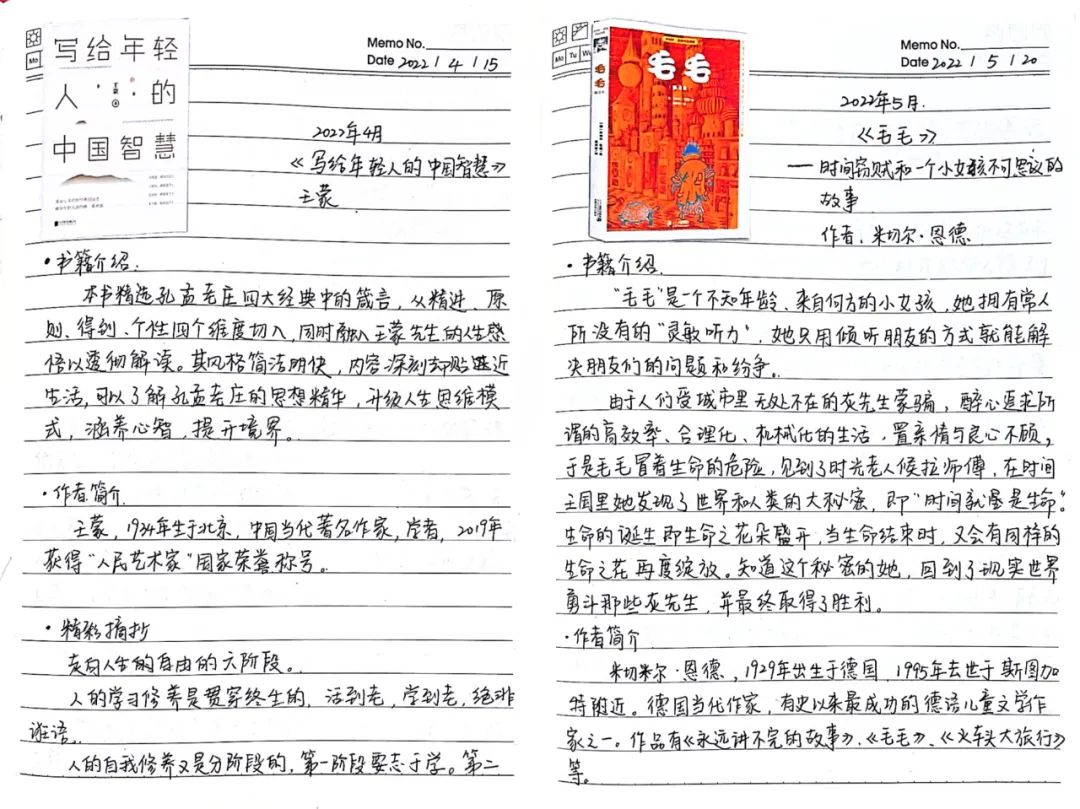 写给年轻
人 的
中国智慧
Mo
Memo No.
Date 2022 / 4 / 15
2022年4月
《写给年轻人的中国智慧》
王蒙
·书籍介绍:
本书精选孔孟老庄四大经典中的箴言，从精进、原
则、得到、个性四个维度切入，同时融入王蒙先生的人生感
悟以透彻解读。其风格简洁明快，内容深刻却贴近
生活，可以了解孔孟老庄的思想精华，升级人生思维模
式，涵养心智，提升境界。
·作者简介
王蒙，1934年生于北京，中国当代著名作家，学者，2019年
获得“人民艺术家”国家荣誉称号。
·精彩摘抄
走向人生的自由的六阶段。
人的学习修养是贯穿终生的，活到老，学到老，绝非
诳语。
人的自我修养又是分阶段的，第一阶段要志于学。第二
毛毛
毛毛
Mo Tu We
Memo No.
Date 2022 / 5 / 20
2022年5月.
《毛毛》
——时间窃贼和一个小女孩不可思议的
故事
作者：米切尔·恩德
·书籍介绍.
“毛毛”是个不知年龄、来自何方的小女孩，她拥有常人
所没有的“灵敏听力”，她只用倾听朋友的方式就能解
决朋友们的问题和纷争。
由于人们受城市里无处不在的灰先生蒙骗，醉心追求所
谓的高效率、合理化、机械化的生活，置亲情与良心不顾，
于是毛毛冒着生命的危险，见到了时光老人候拉师傅，在时间
王国里她发现了世界和人类的大秘密，即“时间就是生命”
生命的诞生即生命之花朵盛开，当生命结束时，又会有同样的
生命之花再度绽放。知道这个秘密的她，回到了现实世界
勇斗那些灰先生，并最终取得了胜利。
·作者简介
米切尔·恩德，1929年出生于德国，1995年去世于斯图加
特附近。德国当代作家，有史以来最成功的德语儿童文学作
家之一。作品有《永远讲不完的故事》、《毛毛》、《火车头大旅行》
等。